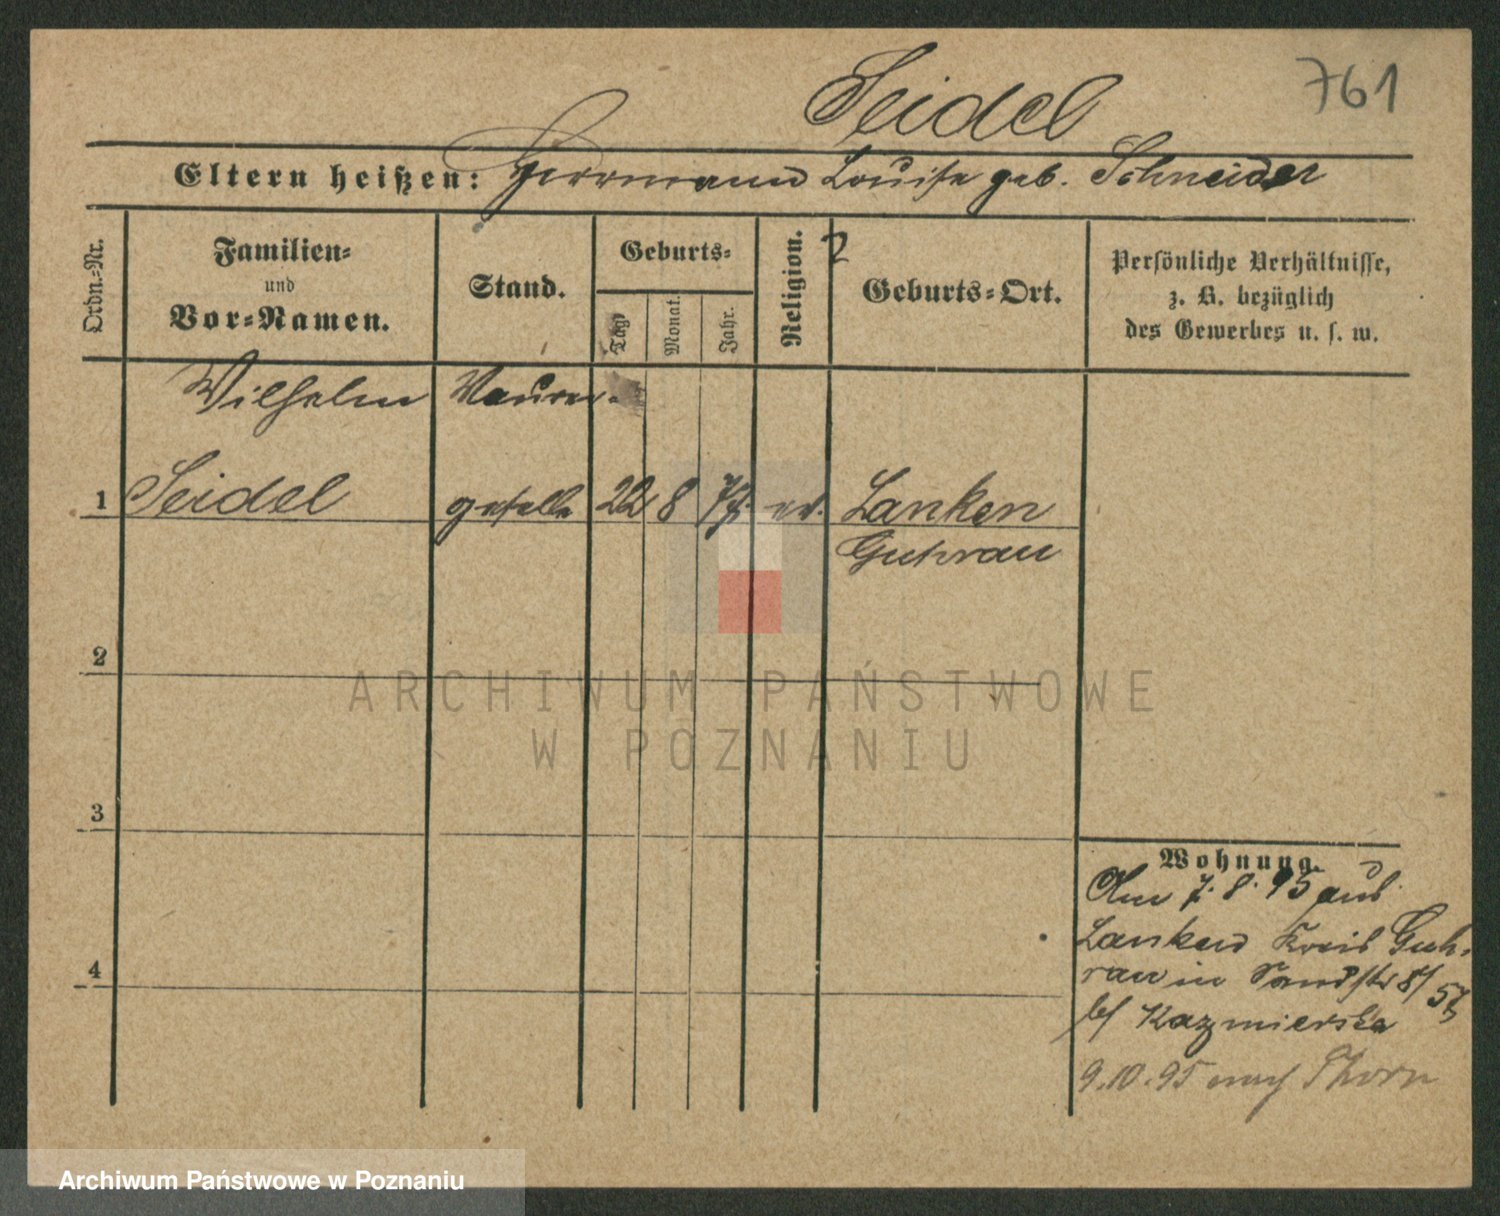 Seidel 761
Eltern heißen: Herrmann Louise geb. Schneider
Ordn.-Nr.
Familien-
und
Vor-Namen.
Stand.
Geburts-
Tag
Monat.
Jahr.
Religion.
Geburts-Ort.
Persönliche Verhältnisse,
z. B. bezüglich
des Gewerbes u. s. w.
Wilhelm Maurer-
1 Seidel geselle 22 8 ev. Lanken
Guhrau
2
3
4
Wohnung.
Am 7. 8. 95 aus
Lanken Kreis Guh-
rau in Sandstr 8/
57
b/ Kazmierska
9.10.95 nach Thorn
ARCHIWUM PAŃSTWOWE
W POZNANIU
Archiwum Państwowe w Poznaniu